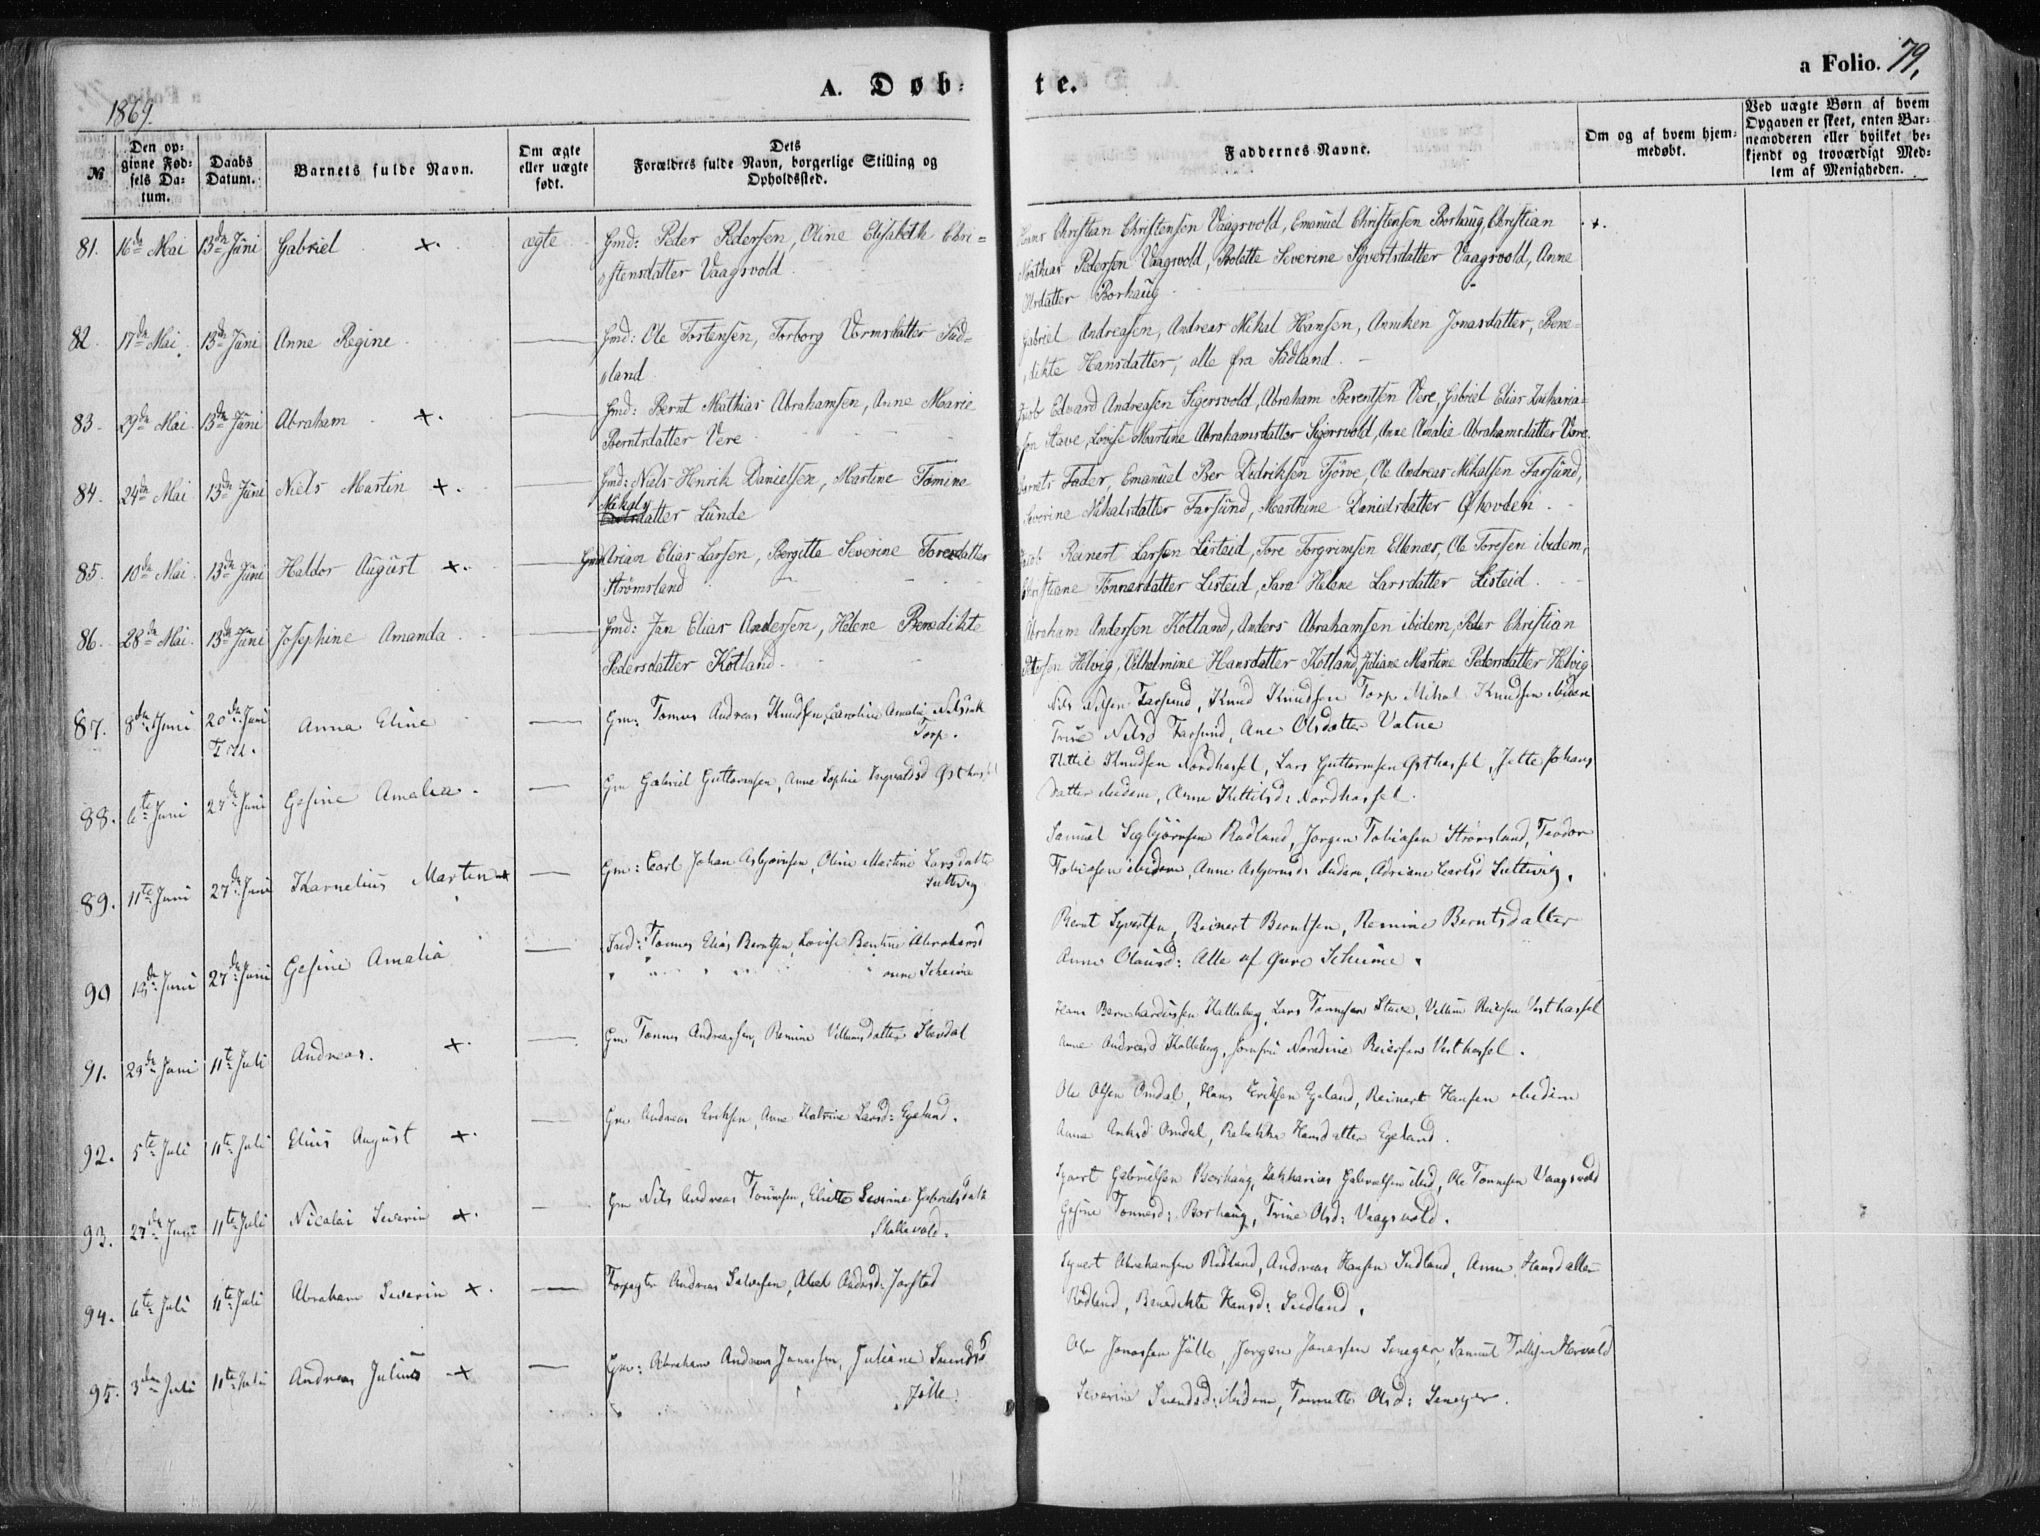 a Folio. 79.
A. Døb-te.
1869.
№
Den op-
givne Fød-
sels Da-
tum.
Daabs
Datum.
Barnets fulde Navn.
Om ægte
eller uægte
født.
Dets
Forældres fulde Navn, borgerlige Stilling og
Opholdssted.
Faddernes Navne.
Om og af hvem hjem-
medøbt.
Ved uægte Børn af hvem
Opgaven er skeet, enten Bar-
nemoderen eller hvilket be-
kjendt og troværdigt Med-
lem af Menigheden.
81. 16de Mai 13de Juni Gabriel +. ægte Gmd: Peder Pedersen, Oline Elisabeth Chri=
stensdatter Vaagsvold
Christian Christensen Vaagsvold, Emanuel Christensen Borhaug, Christian +.
Mathias Pedersen Vaagsvold, Bolette Severine Syvertsdatter Vaagsvold, Anne
Olsdatter Borhaug
82. 17de Mai 13de Juni Anne Regine — Gmd: Ole Tostensen, Torborg Vormsdatter Sud=
land
Gabriel Andreasen, Andreas Mikal Hansen, Anniken Jonasdatter, Bene=
dikte Hansdatter, alle fra Sudland. —
83. 29de Mai 13de Juni Abraham +. — Gmd: Bernt Mathias Abrahamsen, Anne Marie
Berntsdatter Vere
Jacob Edvard Andreasen Sigersvold, Abraham Berentsen Vere, Gabriel Elias Zacharia=
sen Stave, Lovise Martine Abrahamsdatter Sigersvold, Anne Amalie Abrahamsdatter Vere.
84. 24de Mai 13de Juni Niels Martin +. — Gmd: Niels Henrik Danielsen, Martine Tomine
Mikals
datter Lunde
Barnets Fader, Emanuel Ber Didriksen Tjørve, Ole Andreas Mikalsen Farsund,
Severine Mikalsdatter Farsund, Marthine Danielsdatter Øhovden.
85. 10de Mai 13de Juni Haldor August +. — Gmd Arian Elias Larsen, Bergitte Severine Toresdatter
Strømsland
Jacob Reinert Larsen Listeid, Tore Torgrimsen Ellenæs, Ole Toresen ibidem,
Christiane Tønnesdatter Listeid, Sara Helene Larsdatter Listeid.
86. 28de Mai. 13de Juni Josephine Amanda — Gmd: Jan Elias Andersen, Helene Benedikte
Pedersdatter Kotland
Abraham Andersen Kotland, Anders Abrahamsen ibidem, Peder Christian
Pettersen Helvig, Vilhelmine Hansdatter Kotland, Juliane Martine Pedersdatter Helvig
87. 8de Juni 20de Juni Anna Eline — Gm: Tomes Andreas Knudsen, Caroline Amalie Nilsdatt
Torp.
Nils Nilsen Farsund, Knud Knudsen Torp Mikal Knudsen ibidem
Trine Nilsd Farsund, Ane Olsdatter Vatne
88. 6te Juni 27de Juni Gesine Amalia. — Gm Gabriel Guttormsen, Anne Sophie Ingvaldsd Østhassel
Kittil Knudsen Nordhassel, Lars Guttormsen Østhassel, Jette Johans
datter ibidem, Anne Kittilsd: Nordhassel.
89. 11te Juni 27de Juni Karnelius Martin + — Gm: Carl Johan Asbjørnsen, Oline Martine Larsdatte
Luttvig
Samuel Segbjørnsen Rudland, Jørgen Tobiasen Strømsland, Teodor
Tobiasen ibidem, Anne Asbjornsd: ibidem, Adriane Carlsd Luttvig.
90 de Juni 27de Juni Gesine Amalia — Tønnes Elias Berntsen, Lovise Bentine Abrahamsd
Bernt Syvertsen, Reinert Berntsen, Remine Berntsdatter
Anne Olausd: Alle af Øvre Scheime.
91. 29de Juni 11te Juli Andreas. +. — Gm Tønnes Andreassen, Remine Villumsdatter
Hans Bernhardussen Kalleberg, Lars Tønnesen Stave, Villum Reiersen Vesthassel
Anne Andreasd Kalleberg, Jomfru Nordine Reiersen Vesthassel.
92. 5te Juli 11te Juli Elius August +. — Gm Andreas Eriksen, Anne Katrine Larsd: Egeland.
Ole Olsen Omdal, Hans Eriksen Egeland, Reinert Hansen ibidem
Anne Omdal, Rebekke Hansdatter Egeland.
93. 27de Juni 11te Juli Nicolai Severin +. — Gm Nils Andreas Tønnesen, Severine Gabrielsdatt
Skollevold.
Syvert Gabrielsen Borhaug, Zakkarias Gabrielsen ibid, Ole Tønnesen Vaagsvold
Gesine Tønnesd: Borhaug, Trine Olsd: Vaagsvold.
94. 6te Juli 11te Juli Abraham Severin +. — Forpagter Andreas Salvesen, Jarstad
Syvert Abrahamsen Rødland, Andreas Hansen Sudland, Anne Hansdatter
Rødland, Benedikte Hansd: Sudland.
95. 3die Juli 11te Juli Andreas Julius + — Gm: Abraham Andreas Jonassen, Juliane Svendsd
Jølle.
Ole Jonassen Jølle, Jørgen Jonassen Seneger, Samuel Tollefsen Hervold
Severine Svendsd: ibidem, Tonnette Olsd: Seneger.